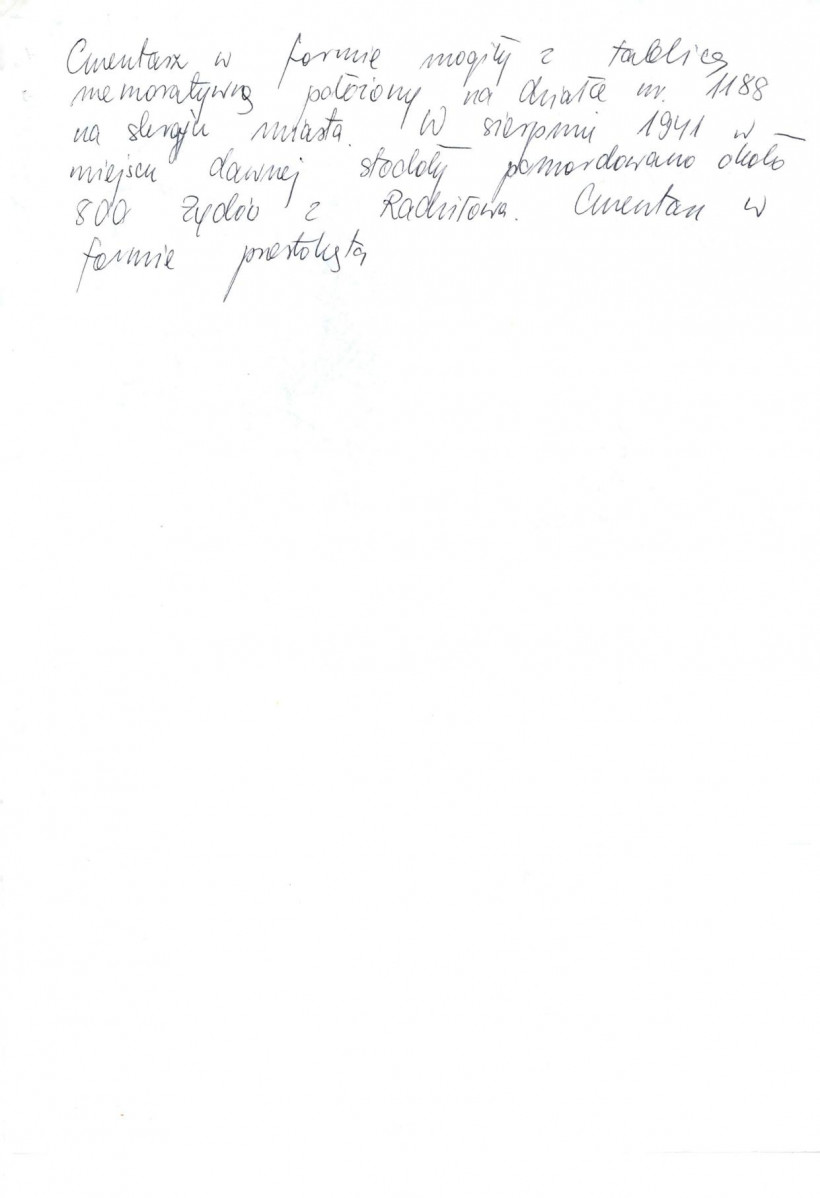 Cmentarz w formie mogiły z tablicą
memoratywną położony na działce nr. 1188
na skraju miasta. W sierpniu 1941 w
miejscu dawnej stodoły pomordowano około
800 Żydów z Radziłowa. Cmentarz w
formie prostokąta